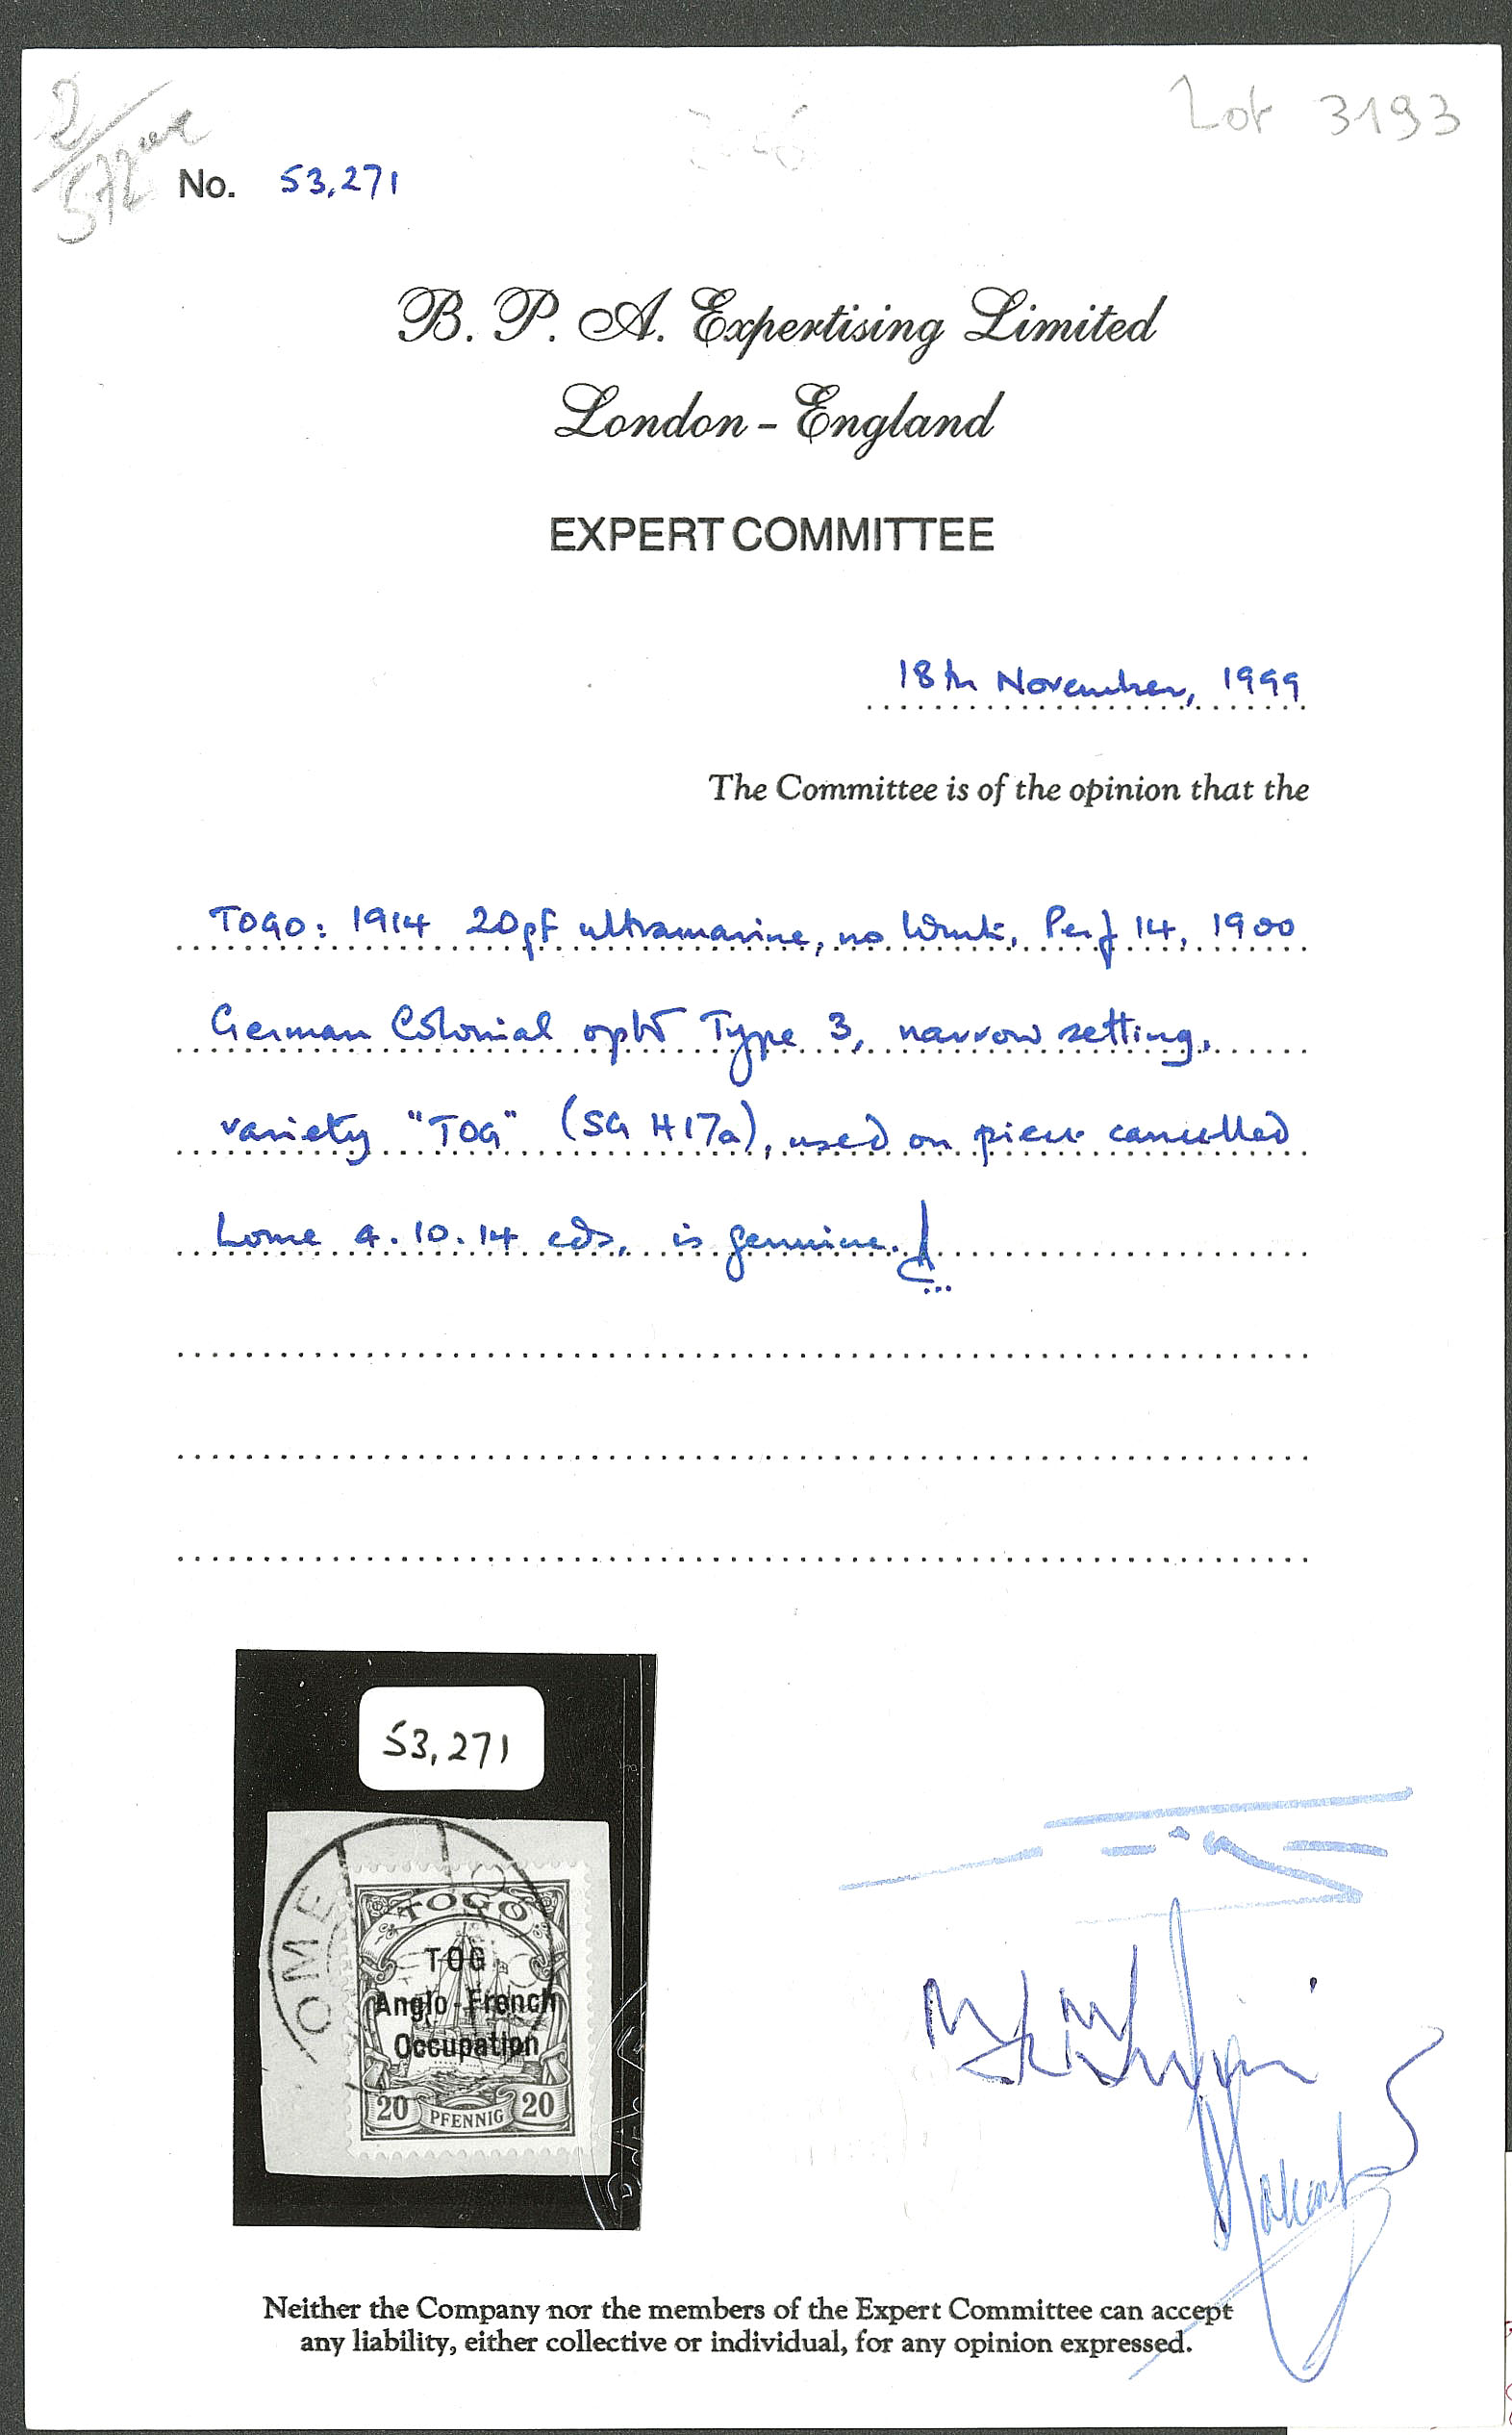 Lot 3193
No. 53,271
B. P. A. Expertising Limited
London - England
EXPERT COMMITTEE
18th November, 1999
The Committee is of the opinion that the
TOGO: 1914 20pf ultramarine, no Wmk, Perf 14, 1900
German Colonial optd Type 3, narrow setting,
variety "TOG" (SG H17a), used on piece cancelled
Lome 4.10.14 cds, is genuine.
53,271
OME
TOGO
TOG
Anglo-French
Occupation
20 PFENNIG 20
Neither the Company nor the members of the Expert Committee can accept
any liability, either collective or individual, for any opinion expressed.